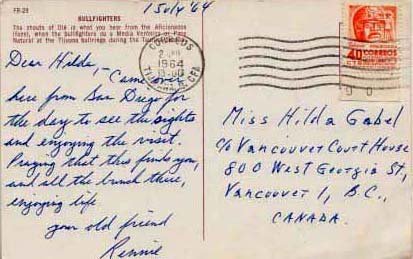 FR-29
1 July '64
BULLFIGHTERS
The shouts of Olé is what you hear from the Aficionados
(fans), when the bullfighters do a Media Verónica or Pase
Natural at the Tijuana bullrings during the
CORREOS
2 JUL
1964
TIJUANA, B. CFA.
40 CORREOS
Dear Hilda, -
Came over
here from San Diego for
the day to see the sights
and enjoying the visit.
Praying that this finds you,
and all the bunch there,
enjoying life
your old friend
Rennie
Miss Hilda Gabel
c/o Vancouver Court House
800 West Georgia St,
Vancouver 1, B.C.,
CANADA.